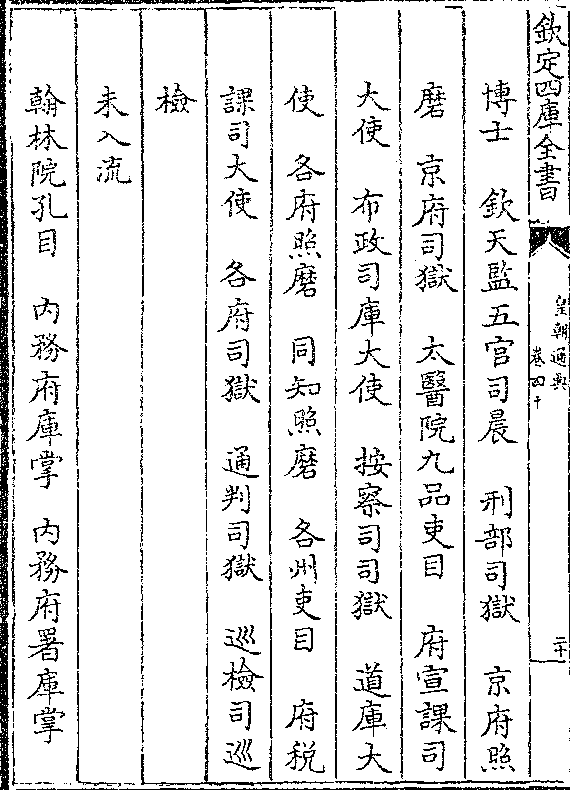 欽定四庫全書
皇朝通典
卷四十
二十
博士　欽天監五官司晨　刑部司獄　京府照
磨　京府司獄　太醫院九品吏目　府宣課司
大使　布政司庫大使　按察司司獄　道庫大
使　各府照磨　同知照磨　各州吏目　府稅
課司大使　各府司獄　通判司獄　巡檢司巡
檢
未入流
翰林院孔目　內務府庫掌　內務府署庫掌